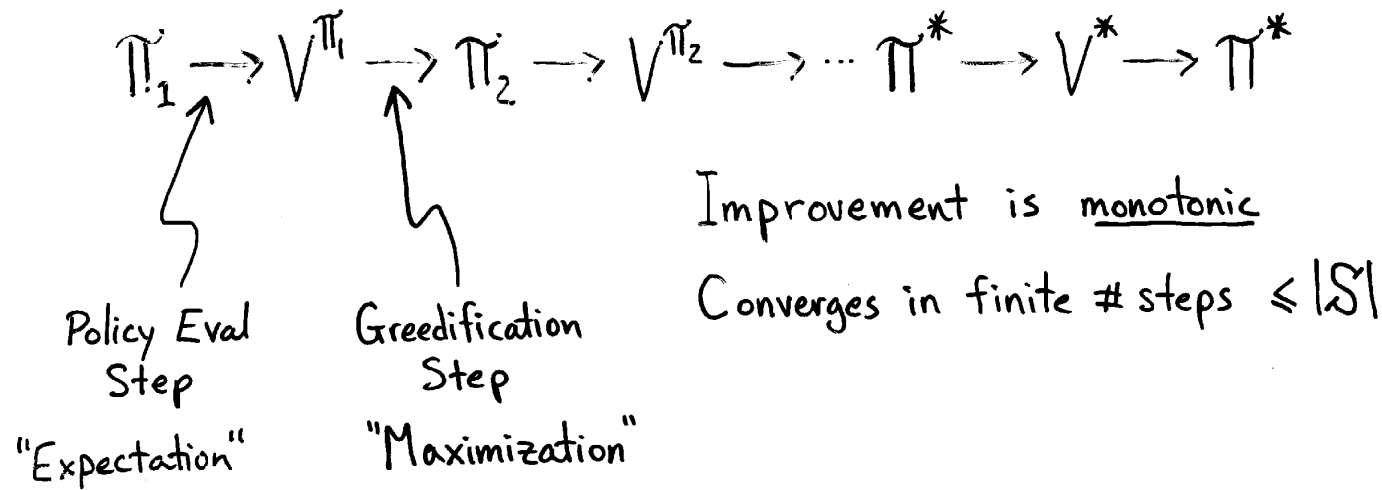 π₁ → V^π₁ → π₂ → V^π₂ → ... π* → V* → π*
Improvement is monotonic
Converges in finite # steps ≤ |S|
Policy Eval
Step
"Expectation"
Greedification
Step
"Maximization"